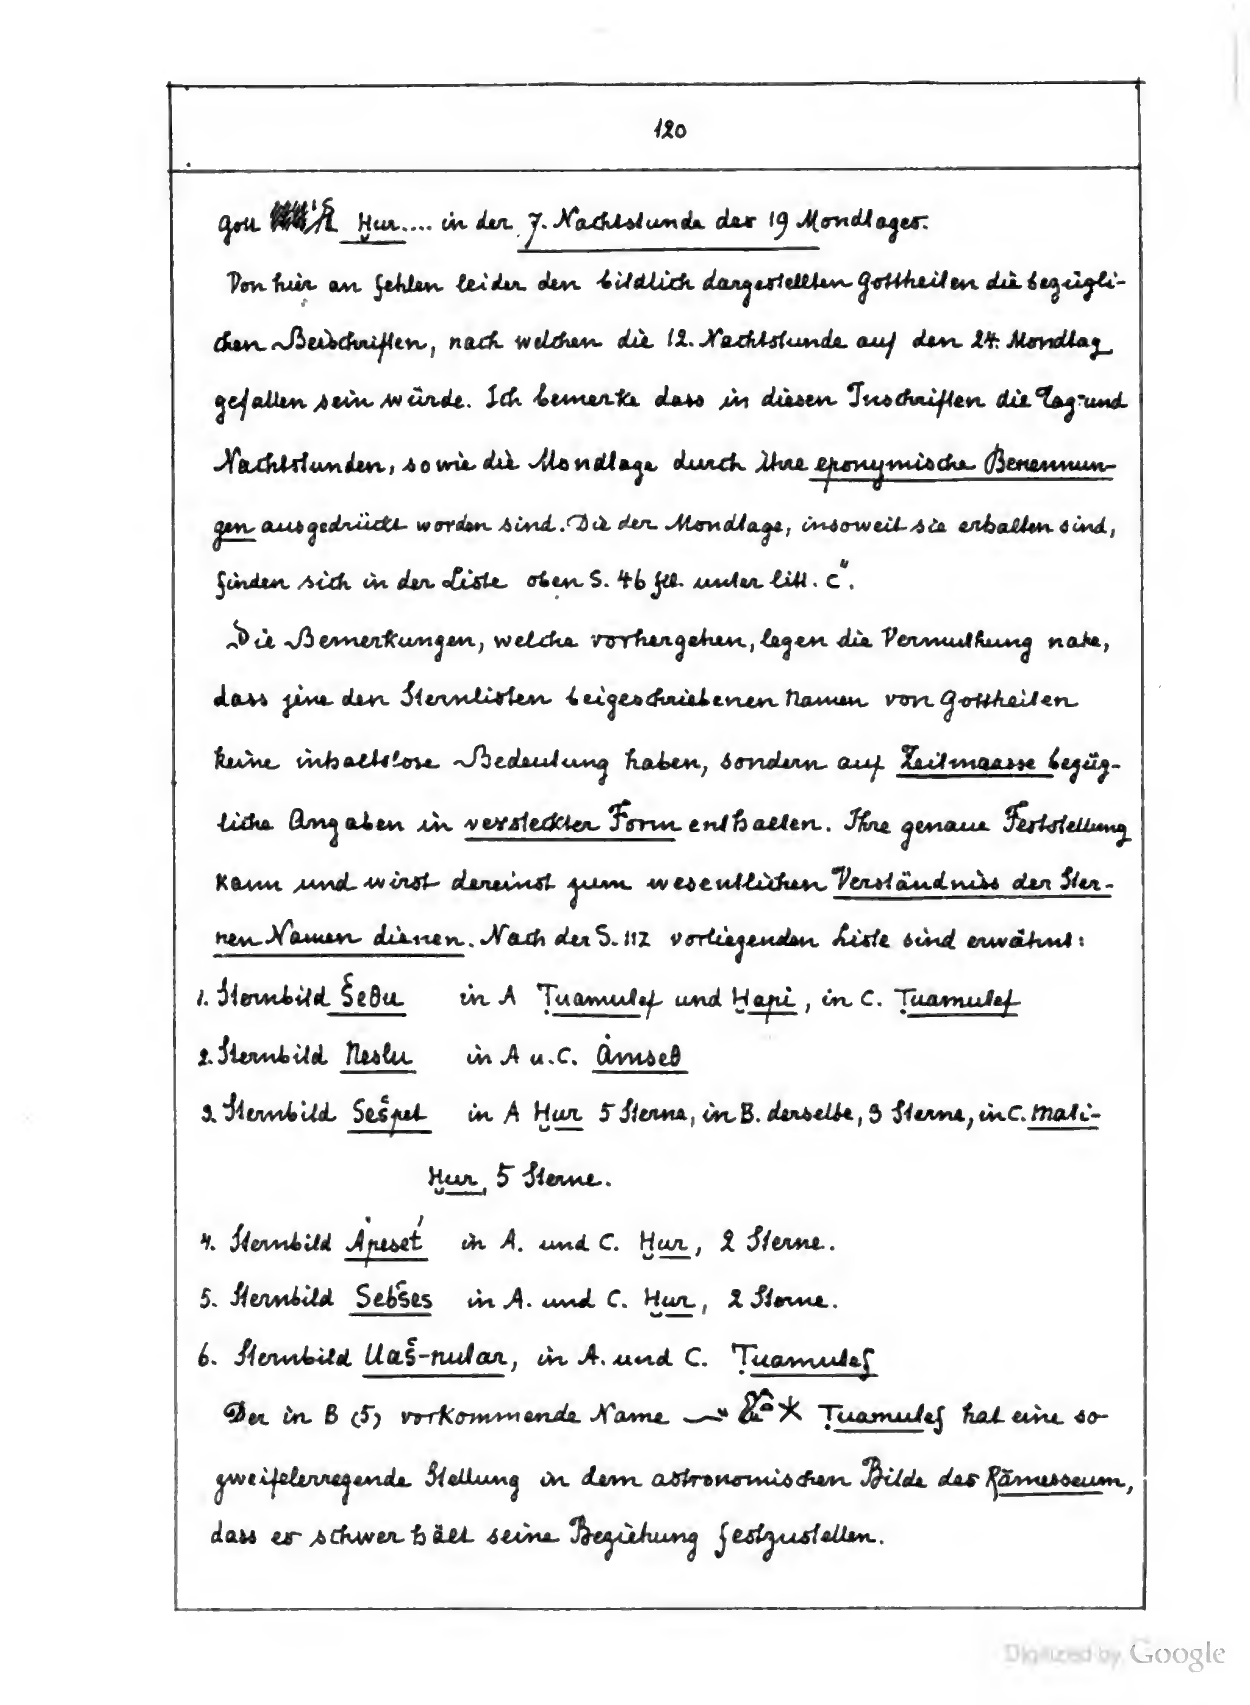 120
Gott Ḥur.... in der 7. Nachtstunde des 19 Mondtages.
Von hier an fehlen leider den bildlich dargestellten Gottheiten die bezügli-
chen Beischriften, nach welchen die 12. Nachtstunde auf den 24. Mondtag
gefallen sein würde. Ich bemerke dass in diesen Inschriften die Tag-und
Nachtstunden, sowie die Mondtage durch ihre eponymische Benennun-
gen ausgedrückt worden sind. Die der Mondtage, insoweit sie erhalten sind,
finden sich in der Liste oben S. 46 fll. unter litt. C".
Die Bemerkungen, welche vorhergehen, legen die Vermuthung nahe,
dass jene den Sternlisten beigeschriebenen Namen von Gottheiten
keine inhaltslose Bedeutung haben, sondern auf Zeitmaasse bezüg-
liche Angaben in versteckter Form enthalten. Ihre genaue Feststellung
kann und wirst dereinst zum wesentlichen Verständniss der Ster-
nen Namen dienen. Nach der S. 112 vorliegenden Liste sind erwähnt:
1. Sternbild Šeθu in A Ṭuamutef und Ḥapi, in C. Ṭuamutef
2. Sternbild Nesłu in A u. C. Ȧmseθ
3. Sternbild Sešpet in A Ḥur 5 Sterne, in B. derselbe, 3 Sterne, in C. Mati-
Ḥur, 5 Sterne.
4. Sternbild Ȧpeset́ in A. und C. Ḥur, 2 Sterne.
5. Sternbild Sebšes in A. und C. Ḥur, 2 Sterne.
6. Sternbild Uaš-nutar, in A. und C. Ṭuamutef
Der in B (5) vorkommende Name Ṭuamutef hat eine so-
zweifelerregende Stellung in dem astronomischen Bilde des Rāmesseum,
dass es schwer hält seine Beziehung festzustellen.
Digitized by Google